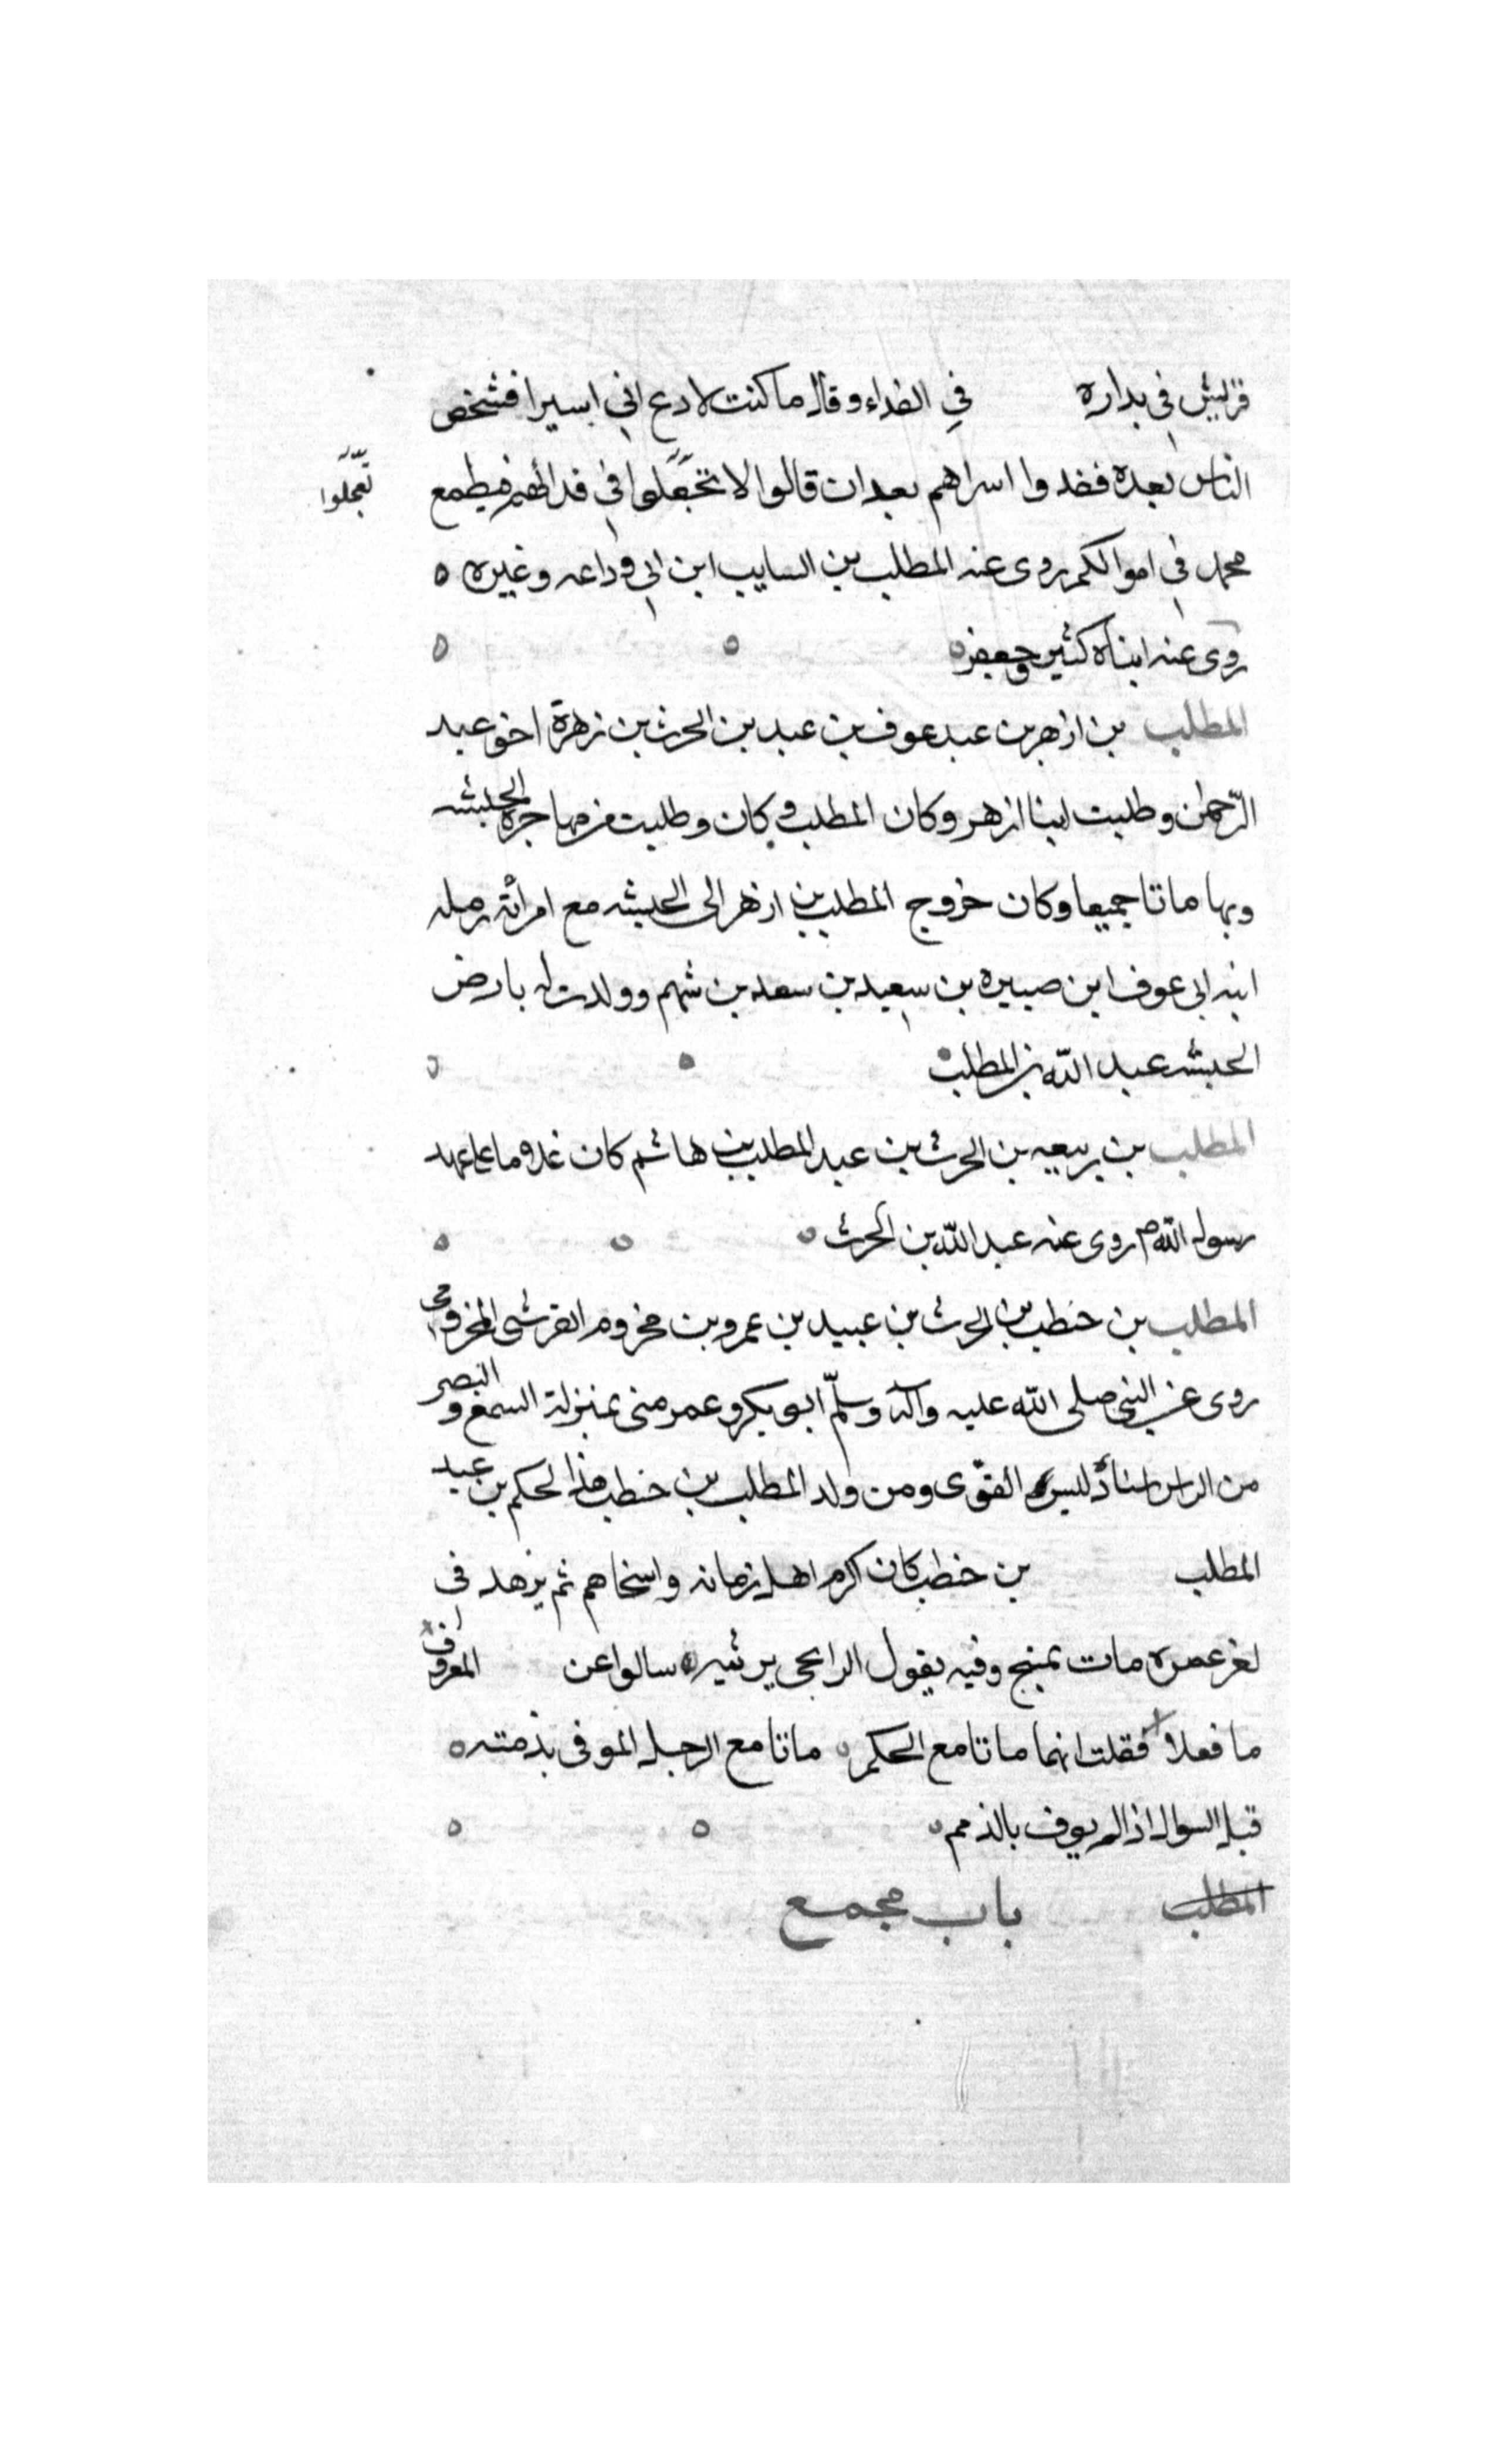 قريش في بداره في الفداء وقال ما كنت لادع ابي اسيرا فشخص
الناس بعده ففدوا اسراهم بعد ان قالوا لا تعجلوا في فدائهم فيطمع
تعجّلوا
محمد في اموالكم روى عنه المطلب بن السايب ابن ابي وداعه وغيره ه
روى عنه ابناه كثير وجعفر ه
المطلب بن ازهر بن عبد عوف بن عبد بن الحرث بن زهرة اخو عبد
الرّحمن وطليب ابنا ازهر وكان المطلب وطليب من مهاجرة الحبشه
وبها ماتا جميعا وكان خروج المطلب بن ازهر الى الحبشه مع امرأته رمله
ابنه ابي عوف ابن صبيره بن سعيد بن سعد بن سهم وولدت له بارض
الحبشه عبد الله بن المطلب ه
المطلب بن ربيعه بن الحرث بن عبد المطلب بن هاشم كان غلاما على عهد
رسول الله ص روى عنه عبد الله بن الحرث ه
المطلب بن حنطب بن الحرث بن عبيد بن عمرو بن مخزوم القرشى المخزومي
روى عن النبي صلى الله عليه وآله وسلّم ابو بكر وعمر منى بمنزلة السمع و البصر
من الراس اسناده ليس القوّى ومن ولد المطلب بن حنطب هذا الحكم بن عبد
المطلب بن حنطب كان اكرم اهل زمانه واسخاهم ثم يزهد في
عمره مات بمنبج وفيه يقول يرثيه ه سالوا عن المعروف
ما فعلا فقلت انهما ماتا مع الحكم ه ماتا مع الرجل الموفى بذمته ه
قبل السوال اذا لم يوف بالذمم ه
المطلب باب مجمع